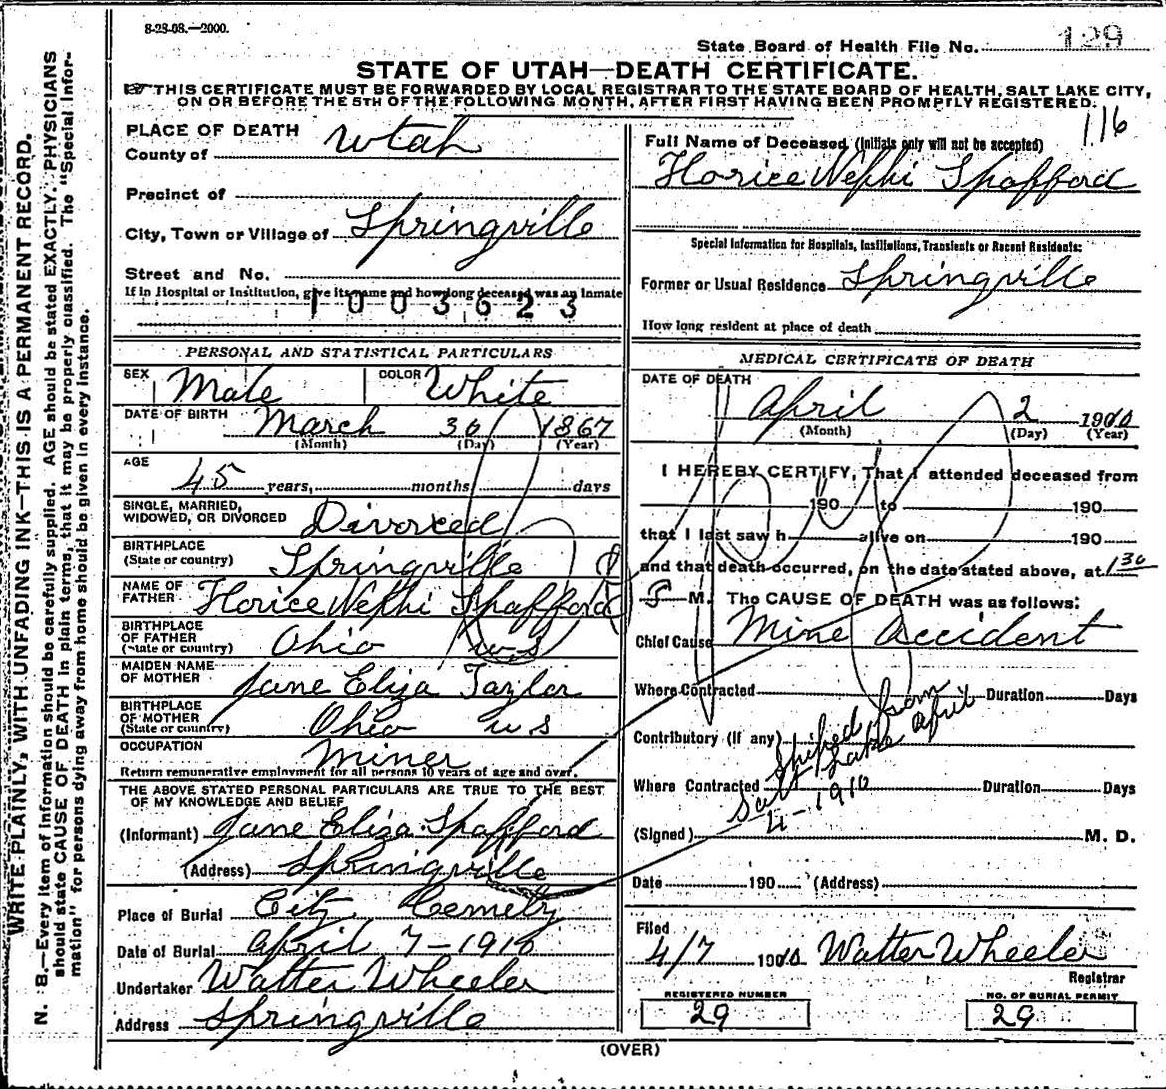 8-28-08.—2000.
State Board of Health File No. 129
STATE OF UTAH—DEATH CERTIFICATE.
THIS CERTIFICATE MUST BE FORWARDED BY LOCAL REGISTRAR TO THE STATE BOARD OF HEALTH, SALT LAKE CITY,
ON OR BEFORE THE 5TH OF THE FOLLOWING MONTH, AFTER FIRST HAVING BEEN PROMPTLY REGISTERED.
116
WRITE PLAINLY, WITH UNFADING INK—THIS IS A PERMANENT RECORD.
N. B.—Every item of information should be carefully supplied. AGE should be stated EXACTLY. PHYSICIANS
should state CAUSE OF DEATH in plain terms, that it may be properly classified. The "Special Infor-
mation" for persons dying away from home should be given in every instance.
PLACE OF DEATH
County of Utah
Precinct of
City, Town or Village of Springville
Street and No.
If in Hospital or Institution, give its name and how long deceased was an Inmate
1003623
PERSONAL AND STATISTICAL PARTICULARS
SEX Male COLOR White
DATE OF BIRTH March 30 1867
(Month) (Day) (Year)
AGE 45 years, months, days
SINGLE, MARRIED,
WIDOWED, OR DIVORCED Divorced
BIRTHPLACE
(State or country) Springville
NAME OF
FATHER Horice Nephi Spafford
BIRTHPLACE
OF FATHER
(State or country) Ohio U.S
MAIDEN NAME
OF MOTHER Jane Eliza Taylor
BIRTHPLACE
OF MOTHER
(State or country) Ohio U S
OCCUPATION Miner
Return remunerative employment for all persons 10 years of age and over.
THE ABOVE STATED PERSONAL PARTICULARS ARE TRUE TO THE BEST
OF MY KNOWLEDGE AND BELIEF
(Informant) Jane Eliza Spafford
(Address) Springville
Place of Burial City Cemetry
Date of Burial April 7-1910
Undertaker Walter Wheeler
Address Springville
Full Name of Deceased (Initials only will not be accepted)
Horice Nephi Spafford
Special Information for Hospitals, Institutions, Transients or Recent Residents:
Former or Usual Residence Springville
How long resident at place of death
MEDICAL CERTIFICATE OF DEATH
DATE OF DEATH
April 2 1910
(Month) (Day) (Year)
I HEREBY CERTIFY, That I attended deceased from
190 to 190
that I last saw h alive on 190
and that death occurred, on the date stated above, at 1 30
M. The CAUSE OF DEATH was as follows:
Chief Cause Mine Accident
Where Contracted Duration Days
Contributory (If any)
Where Contracted Duration Days
Shiped from
Salt Lake April
4-1910
(Signed) M. D.
Date 190 (Address)
Filed
4/7 1910 Walter Wheeler
Registrar
REGISTERED NUMBER
29
NO. OF BURIAL PERMIT
29
(OVER)